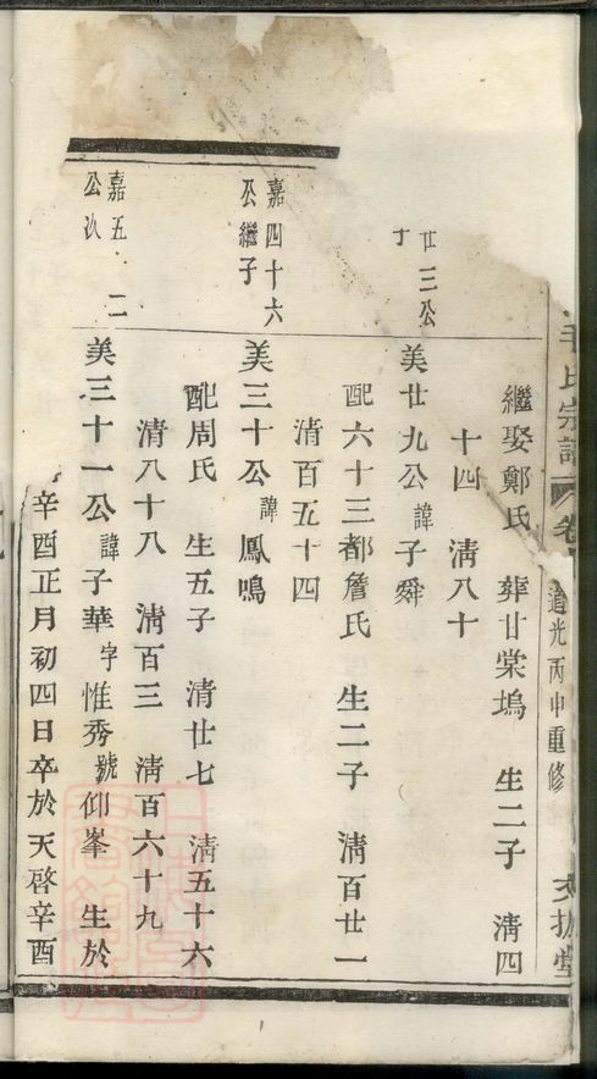 氏宗譜 卷 道光丙申重修
繼娶鄭氏 葬廿棠塢 生二子 淸四
十四 淸八十
廿三公
子
美廿九公諱子舜
配六十三都詹氏 生二子 淸百廿一
淸百五十四
嘉四十六
公繼子
美三十公諱鳳鳴
配周氏 生五子 淸廿七 淸五十六
淸八十八 淸百三 淸百六十九
嘉五 二
公次
美三十一公諱子華字惟秀號仰峯 生於
辛酉正月初四日卒於天啓辛酉